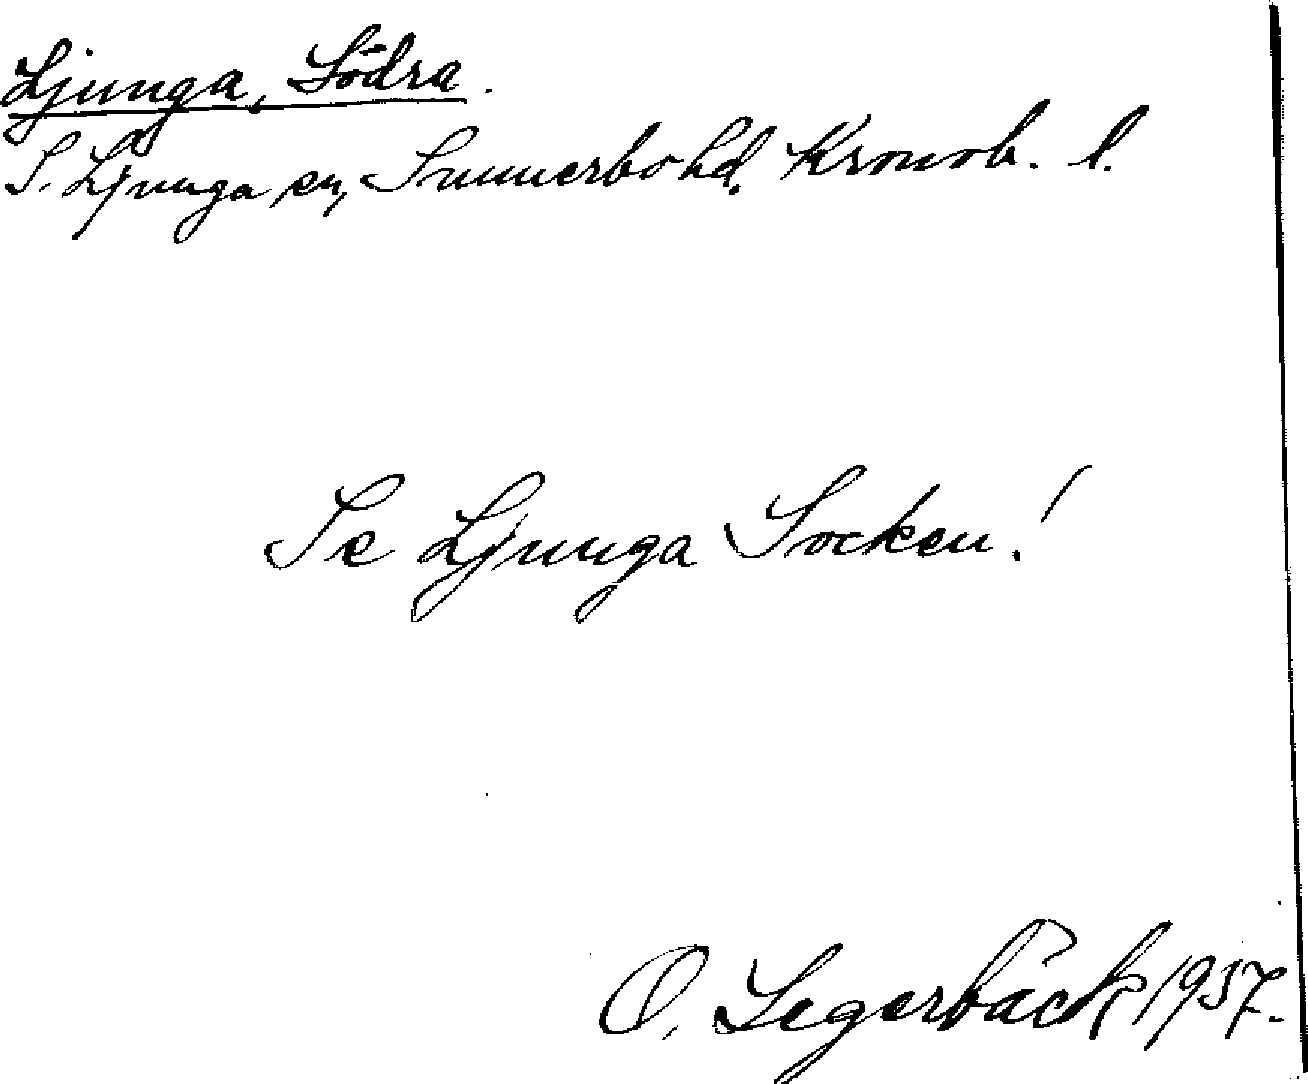 Ljunga, Södra.
S. Ljunga sn, Sunnerbo hd, Kronob. l.
Se Ljunga Socken!
O. Segerbäck 1937.